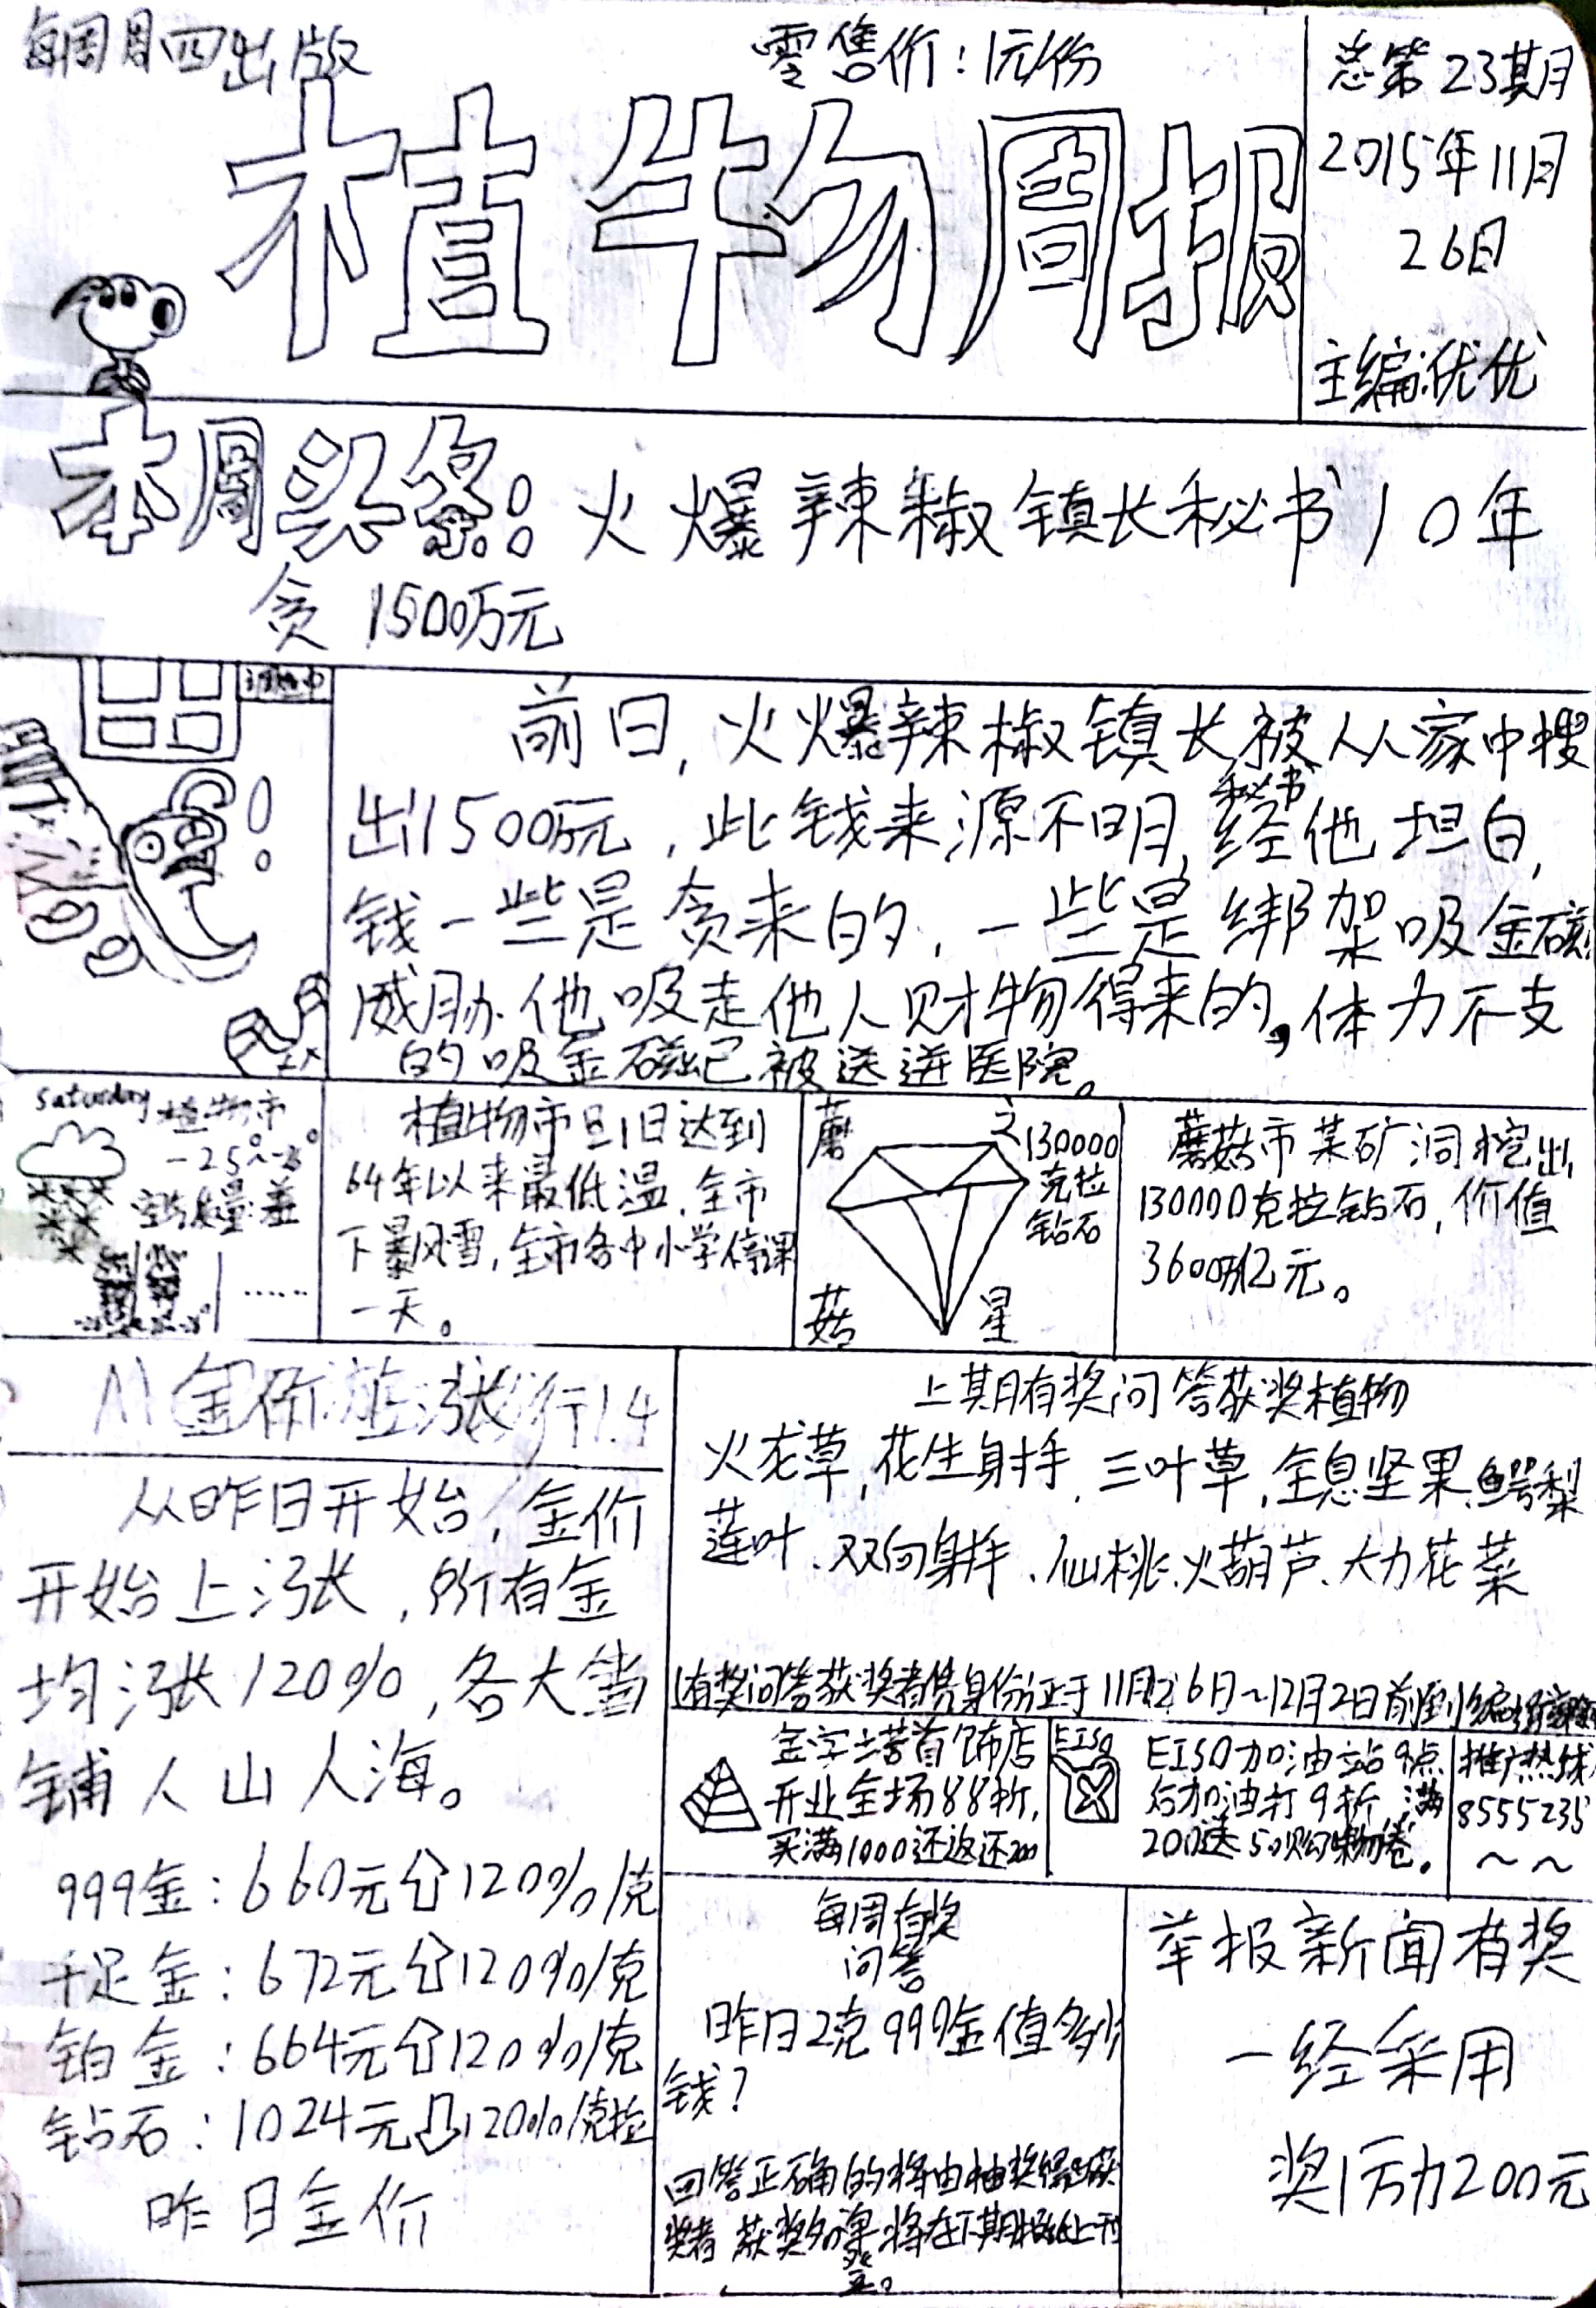 每周周四出版
零售价：1元/份
总第23期
2015年11月
26日
主编：优优
植物周报
本周头条：火爆辣椒镇长秘书10年
贪1500万元
前日，火爆辣椒镇长秘书被人从家中搜
出1500万元，此钱来源不明，经他坦白，
钱一些是贪来的，一些是绑架吸金磁
威胁他吸走他人财物得来的，体力不支
的吸金磁已被送进医院。
saturday 植物市
空气质量：差
……
植物市21日达到
64年以来最低温，全市
下暴风雪，全市各中小学停课
一天。
蘑
菇
之
星
130000
克拉
钻石
蘑菇市某矿洞挖出
130000克拉钻石，价值
3600万亿元。
金价 涨
从昨日开始，金价
开始上涨，所有金
均涨120%，各大当
铺人山人海。
999金：660元⇧120%/克
千足金：672元⇧120%/克
铂金：664元⇧120%/克
钻石：1024元⇩120%/克拉
昨日金价
上期有奖问答获奖植物
火龙草，花生射手，三叶草，全息坚果、鳄梨
莲叶、双向射手、仙桃、火葫芦、大力花菜
有奖问答获奖者凭身份证于11月26日~12月2日前到编辑部
金字塔首饰店
开业全场88折，
买满1000还返还200
EISO
EISO加油站9点
后加油打9折，满
200送50购物卷。
推广热线
8555235
～～
每周有奖
问答
昨日2克999金值多少
钱？
回答正确的将由抽奖得获
奖者 获奖名单将在下期报纸上刊
登。
举报新闻有奖
一经采用
奖励200元